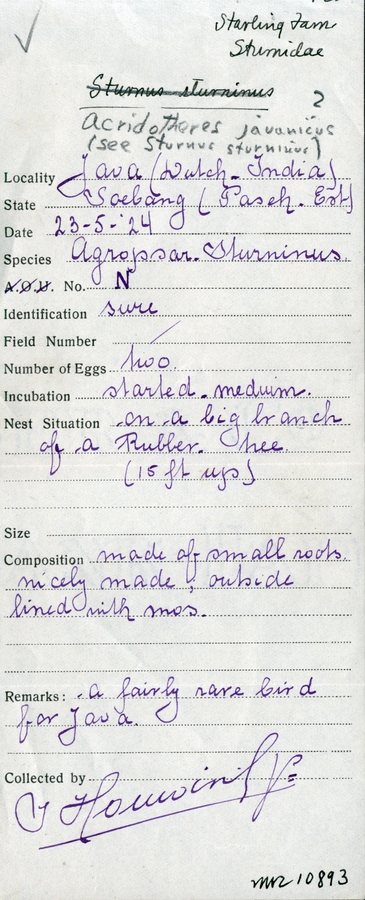 Starling Fam
Sturnidae
Sturnus sturninus
2
Acridotheres javanicus
(see Sturnus sturninus)
Locality Java (Dutch-India)
State Soebang (Pasch. Est)
Date 23-5-'24
Species Agropsar. Sturninus.
A.O.U. No. N
Identification sure
Field Number
Number of Eggs two
Incubation started. medium.
Nest Situation on a big branch
of a Rubber. tree.
(15 ft up)
Size
Composition made of small roots.
nicely made, outside
lined with mos.
Remarks: a fairly rare bird
for Java.
Collected by
10893